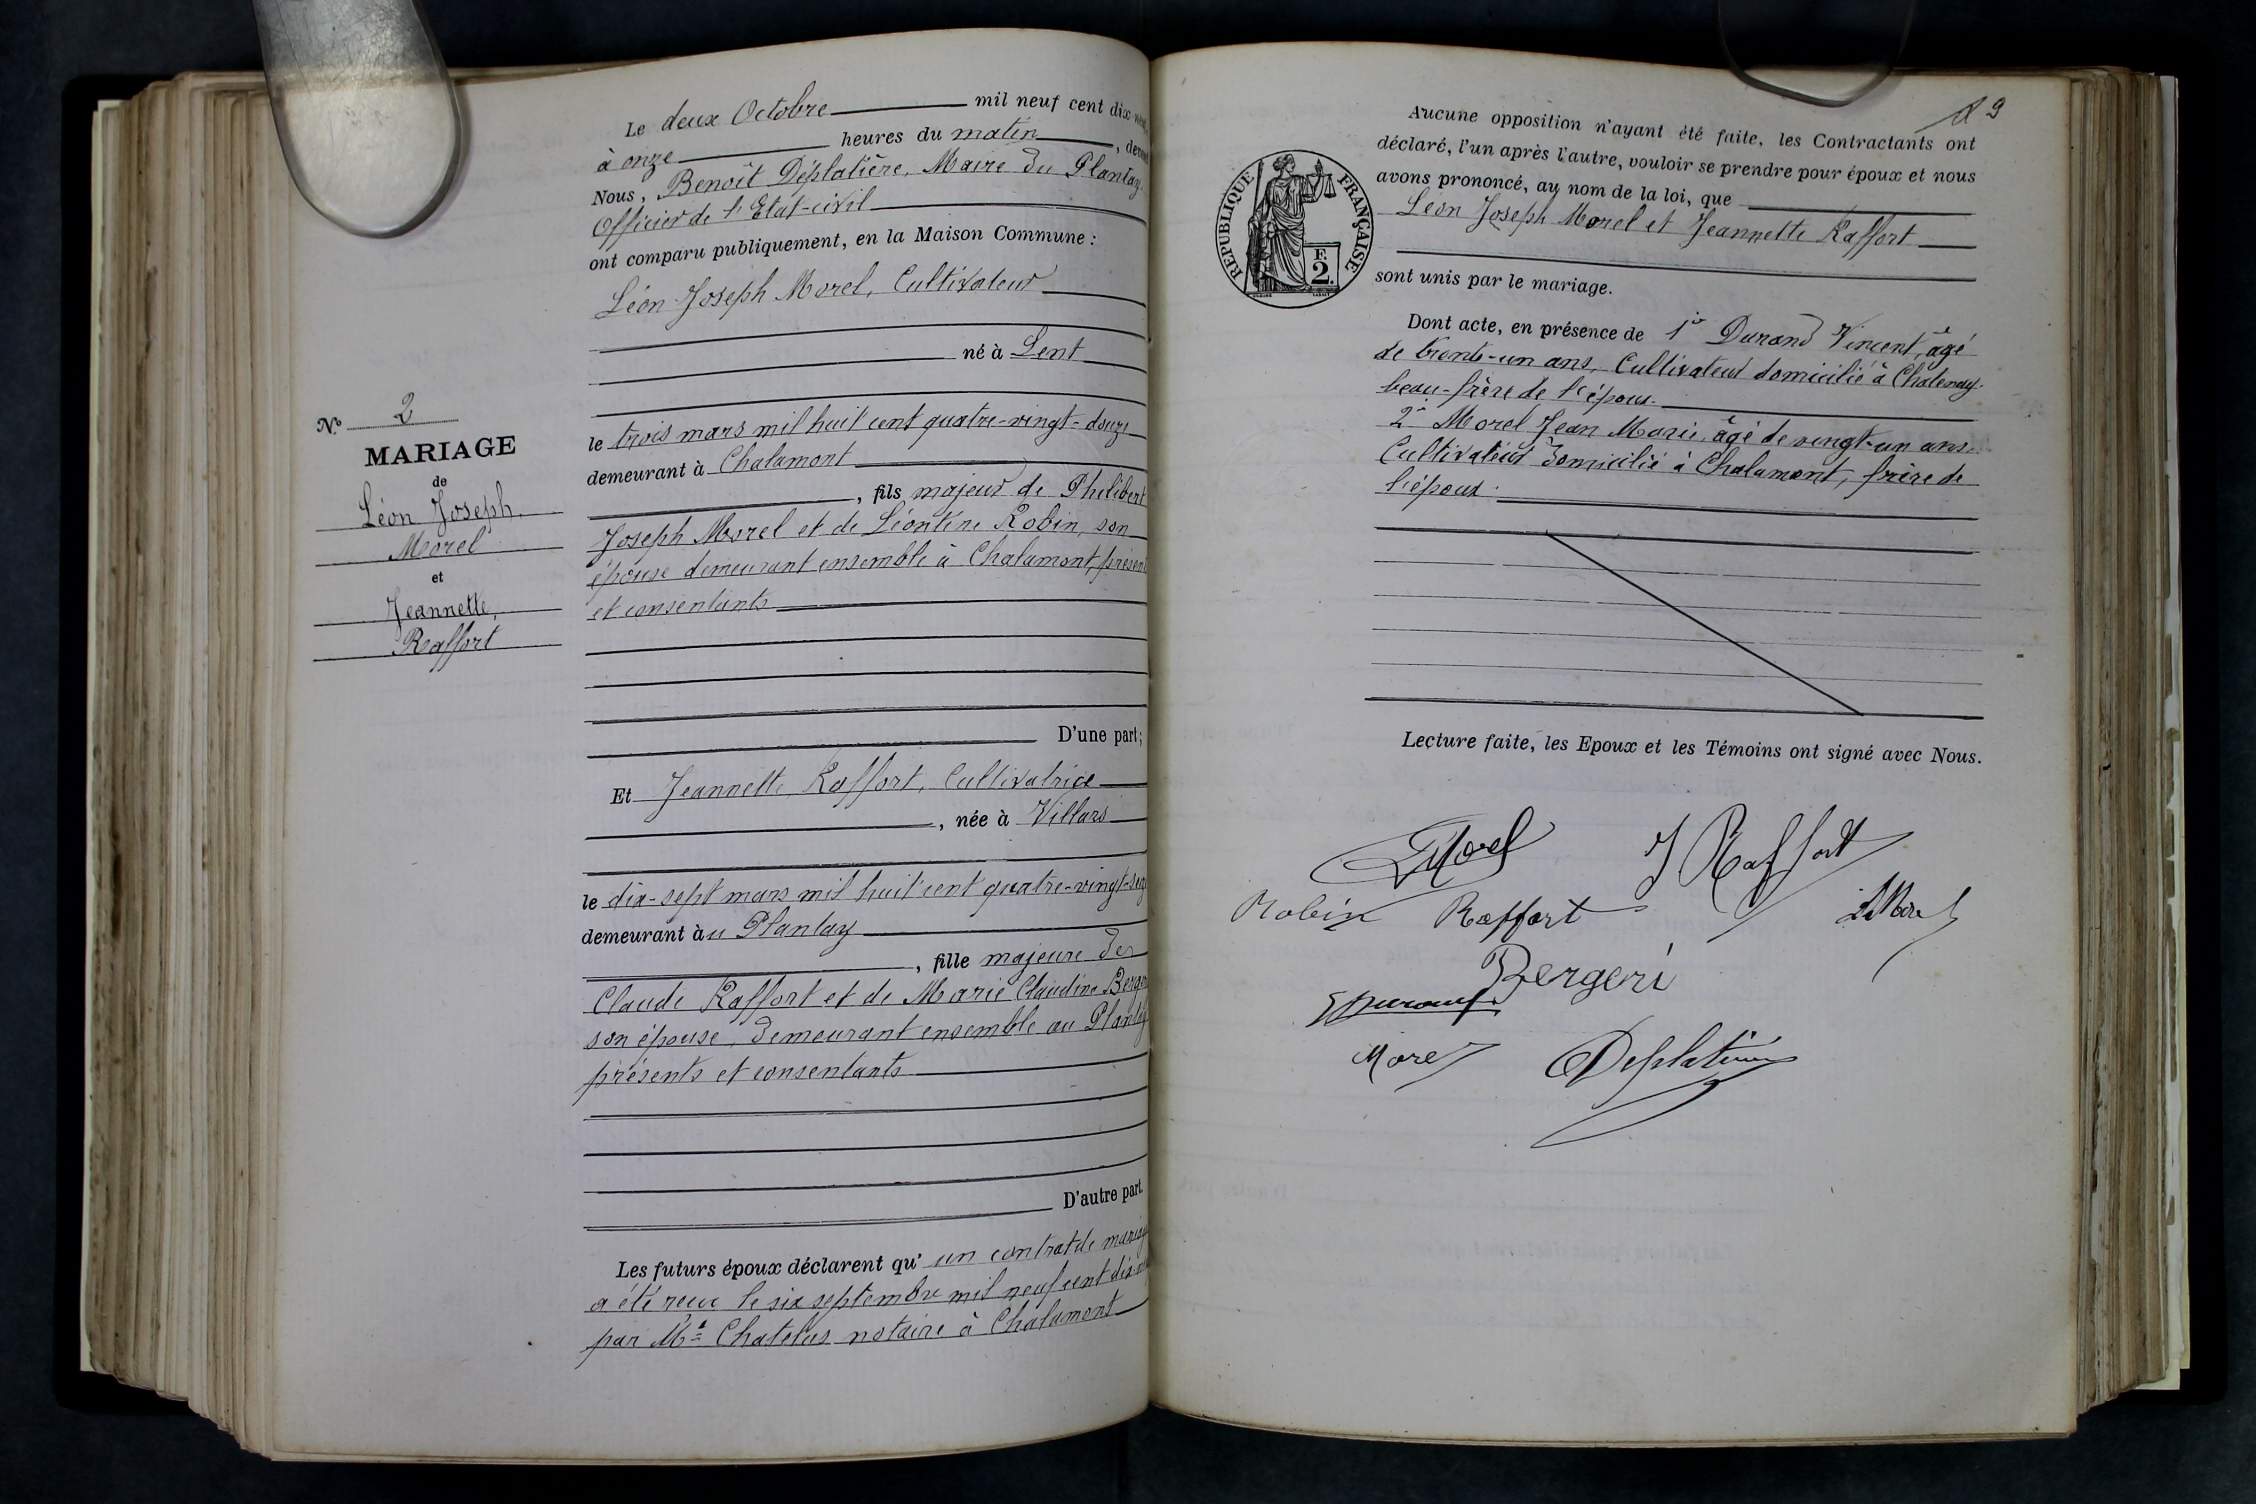 Le deux Octobre mil neuf cent dix-neuf
à onze heures du matin, devant
Nous, Benoît Déplatière, Maire du Plantay,
Officier de l'Etat-civil
ont comparu publiquement, en la Maison Commune :
Léon Joseph Morel, Cultivateur
né à Lent
le trois mars mil huit cent quatre-vingt-douze
demeurant à Chalamont
, fils majeur de Philibert
Joseph Morel et de Léontine Robin, son
épouse demeurant ensemble à Chalamont, présents
et consentants
D'une part ;
Et Jeannette Raffort, Cultivatrice
, née à Villars
le dix-sept mars mil huit cent quatre-vingt-
demeurant à u Plantay
, fille majeure de
Claude Raffort et de Marie Claudine Berger
son épouse, demeurant ensemble au Plantay
présents et consentants
D'autre part.
Les futurs époux déclarent qu' un contrat de mariage
a été recu le six septembre mil neuf cent dix-
par Me Chatelus notaire à Chalamont
No 2
MARIAGE
de
Léon Joseph,
Morel
et
Jeannette,
Raffort
9
Aucune opposition n'ayant été faite, les Contractants ont
déclaré, l'un après l'autre, vouloir se prendre pour époux et nous
avons prononcé, au nom de la loi, que
Léon Joseph Morel et Jeannette Raffort
sont unis par le mariage.
REPUBLIQUE FRANÇAISE
F.
2.
Dont acte, en présence de 1° Durand Vincent, âgé
de trente-un ans, Cultivateur domicilié à Châtenay.
beau-frère de l'époux.
2° Morel Jean Marie, âgé de vingt-un ans.
Cultivateur domicilié à Chalamont, frère de
l'époux.
Lecture faite, les Epoux et les Témoins ont signé avec Nous.
LMorel J Raffort
Robin Raffort Morel
Bergeri
Durand
Morel Deplatière